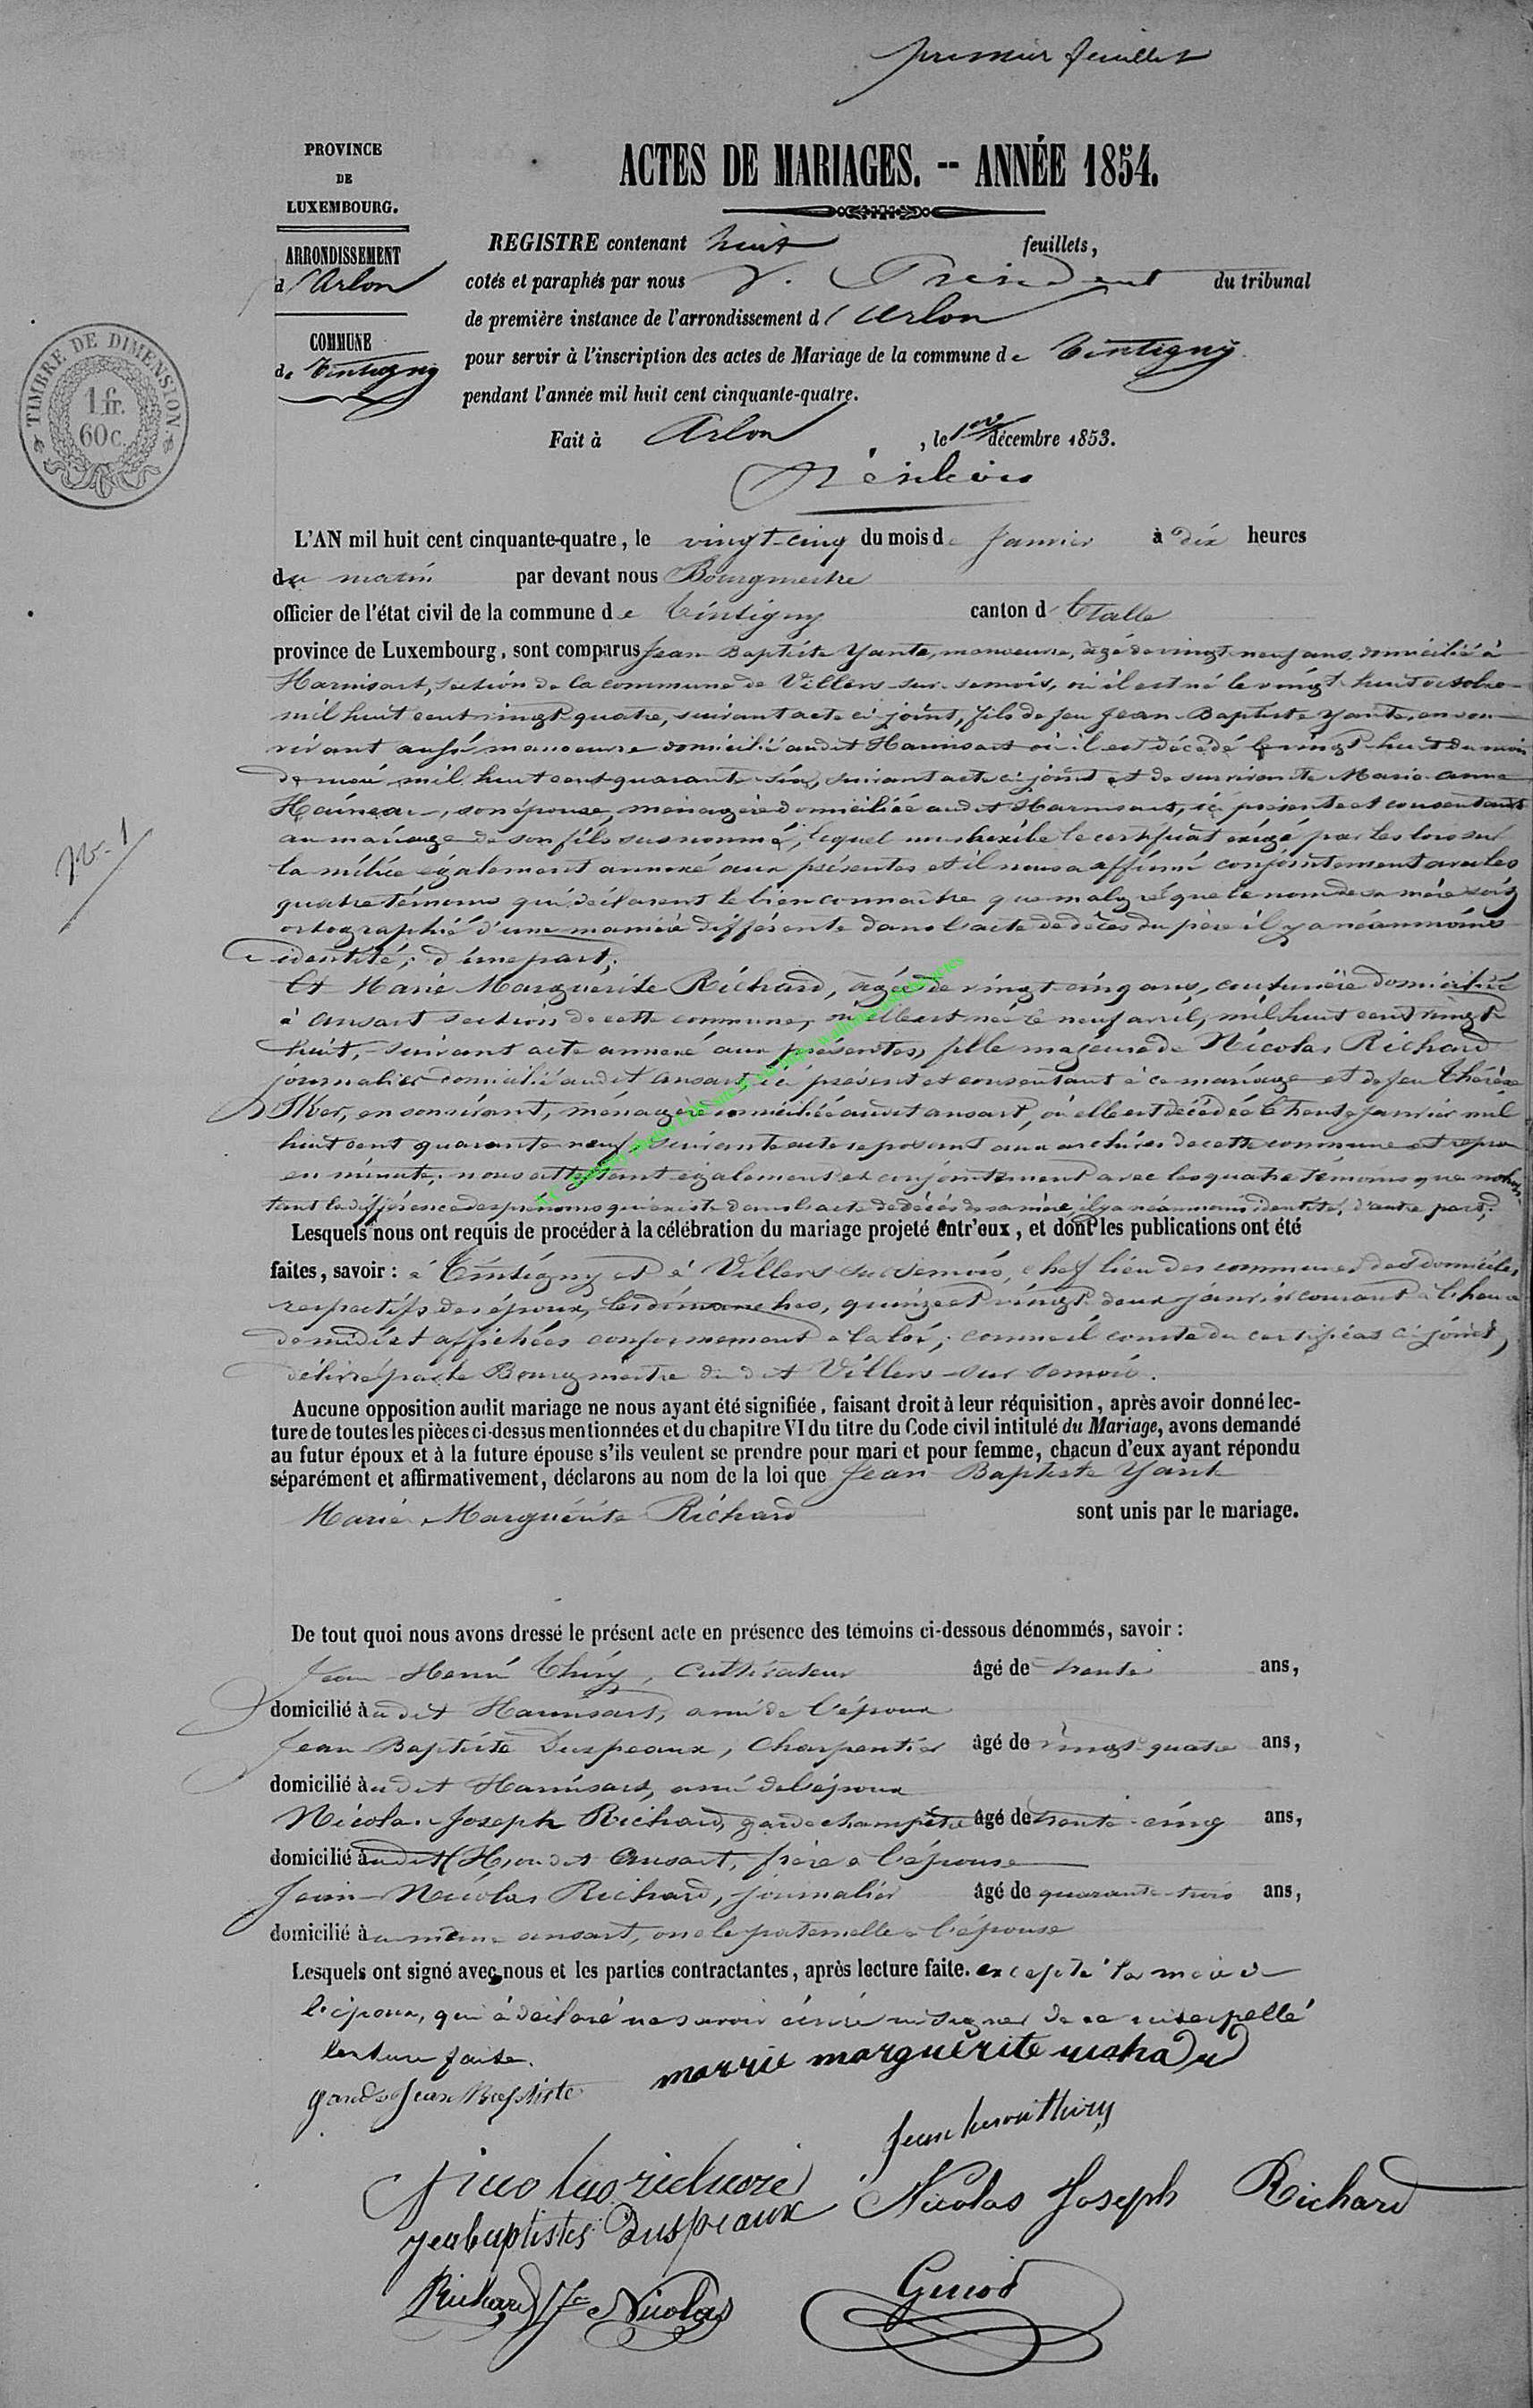 premier feuillet
PROVINCE
DE
LUXEMBOURG.
ACTES DE MARIAGES. -- ANNÉE 1854.
ARRONDISSEMENT
d'Arlon
COMMUNE
de Tintigny
TIMBRE DE DIMENSION
1 fr.
60 c.
REGISTRE contenant huit feuillets,
cotés et paraphés par nous Président du tribunal
de première instance de l'arrondissement d'Arlon
pour servir à l'inscription des actes de Mariage de la commune de Tintigny
pendant l'année mil huit cent cinquante-quatre.
Fait à Arlon, le 1er décembre 1853.
L'AN mil huit cent cinquante-quatre, le vingt-cinq du mois de Janvier à dix heures
du matin par devant nous Bourgmestre
officier de l'état civil de la commune de Tintigny canton d'Etalle
province de Luxembourg, sont comparus Jean Baptiste Yante, manoeuvre, âgé de vingt neuf ans, domicilié à
Harnisart, section de la commune de Villers-sur-semois, où il est né le vingt huit octobre
mil huit cent vingt quatre, suivant acte ci-joint, fils de feu Jean-Baptiste Yante, en son
vivant aussi manoeuvre domicilié audit Harnisart où il est décédé le vingt-huit du mois
de mai mil huit cent quarante six, suivant acte ci joint et de survivante Marie anne
Haineau, son épouse, ménagère domiciliée audit Harnisart, ici présente et consentante
au mariage de son fils susnommé, lequel nous exibe le certificat exigé par les lois sur
la milice également annexé aux présentes et il nous a affirmé conjointement avec les
quatre témoins qui déclarent le bien connaître que malgré que le nom de sa mère soit
ortographié d'une manière différente dans l'acte de décès du père il y a néanmoins
identité; d'une part;
Et Marie Marguerite Richard, âgée de vingt-cinq ans, couturière domiciliée
à ansart section de cette commune, où elle est née le neuf avril, mil huit cent vingt
huit, suivant acte annexé aux présentes, fille majeure de Nicolas Richard
journalier domicilié audit ansart ici présent et consentant à ce mariage et de feu Thérèse
en son vivant, ménagère domiciliée audit ansart, où elle est décédée le trente janvier mil
huit cent quarante neuf, suivant acte reposant aux archives de cette commune et repris
en minute, nous attestant également et conjointement avec les quatre témoins que nonobs
tant la différence des prénoms qui existe dans l'acte de décès de sa mère, il y a néanmoins identité, d'autre part;
Lesquels nous ont requis de procéder à la célébration du mariage projeté entr'eux, et dont les publications ont été
faites, savoir: à Tintigny et à Villers sur semois, chef lieu des communes des domiciles
respectifs des époux, les dimanches, quinze et vingt-deux janvier courant à l'heure
de midi et affichées conformement à la loi, comme il conste du certificat ci-joint,
délivré par le Bourgmestre du dit Villers-sur-semois.
Aucune opposition audit mariage ne nous ayant été signifiée, faisant droit à leur réquisition, après avoir donné lec-
ture de toutes les pièces ci-dessus mentionnées et du chapitre VI du titre du Code civil intitulé du Mariage, avons demandé
au futur époux et à la future épouse s'ils veulent se prendre pour mari et pour femme, chacun d'eux ayant répondu
séparément et affirmativement, déclarons au nom de la loi que Jean Baptiste Yante
Marie Marguerite Richard sont unis par le mariage.
De tout quoi nous avons dressé le présent acte en présence des témoins ci-dessous dénommés, savoir:
Jean Henri Thiry, Cultivateur âgé de trente ans,
domicilié à udit Harnisart, ami de l'époux
Jean Baptiste Duspeaux, Charpentier âgé de vingt-quatre ans,
domicilié à udit Harnisart, ami de l'époux
Nicolas Joseph Richard, garde champêtre âgé de trente-cinq ans,
domicilié audit Ansart, frère à l'épouse
Jean Nicolas Richard, journalier âgé de quarante-trois ans,
domicilié à u même ansart, oncle paternelle à l'épouse
Lesquels ont signé avec nous et les parties contractantes, après lecture faite. excepté la mère de
l'époux, qui à déclaré ne savoir écrire ni signer de ce interpellé
lecture faite.
marrie marguerite richard
Jean Baptiste
Jean henri thiry
Nicolas richard
Nicolas Joseph Richard
jeabaptiste Duspeaux
Richard Jn Nicolas